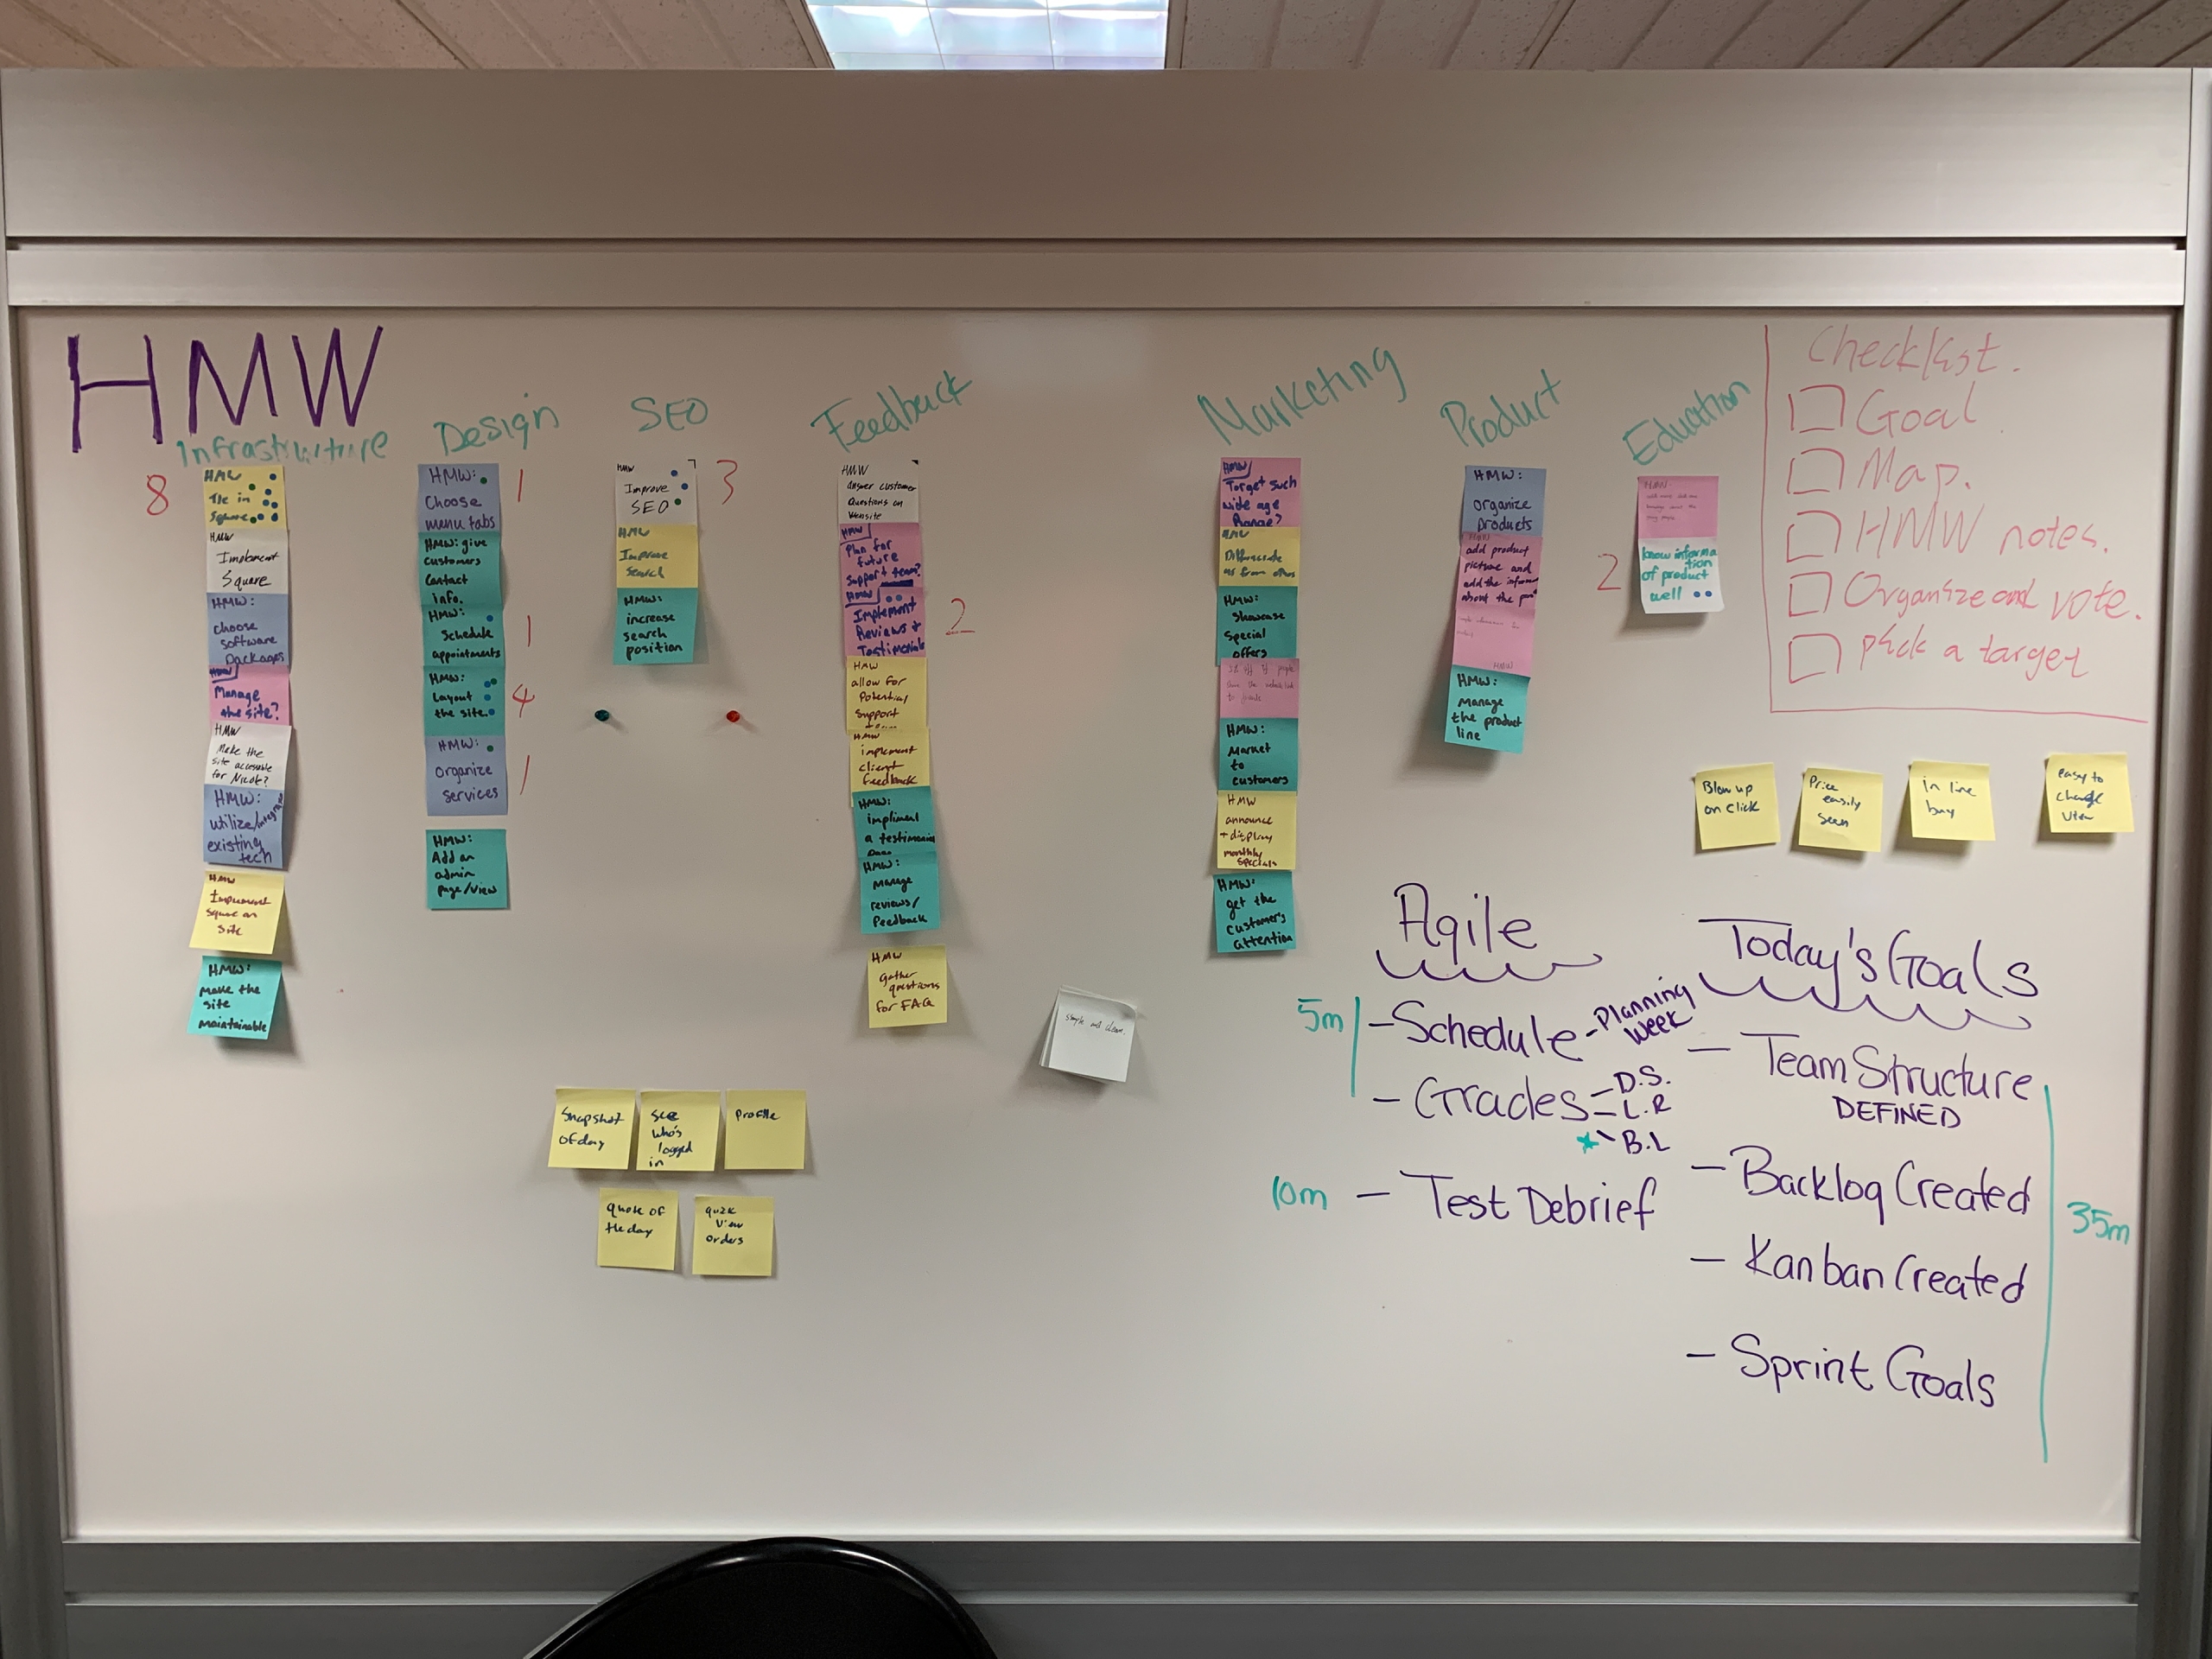 HMW
Infrastruture
8
HMW
Tie in
Square
HMW
Implement
Square
HMW:
choose
software
packages
HMW
Manage
the site?
HMW
Make the
site accessable
for Nicole?
HMW:
utilize/integrate
existing
tech
HMW
Implement
square on
site
HMW:
make the
site
maintainable
Design
HMW:
Choose
menu tabs
1
HMW: give
customers
contact
info.
HMW:
Schedule
appointments
1
HMW:
Layout
the site.
4
HMW:
organize
services
1
HMW:
Add an
admin
page/view
SEO
HMW
Improve
SEO
3
HMW
Improve
Search
HMW:
increase
search
position
Feedback
HMW
Answer customer
Questions on
Website
HMW
Plan for
future
support team?
HMW
Implement
Reviews +
Testimonials
2
HMW
allow for
Potential
Support
HMW
implement
client
feedback
HMW:
impliment
a testimonial
HMW:
manage
reviews/
feedback
HMW
gather
questions
for FAQ
Marketing
HMW
Target such
wide age
Range?
HMW
Differenciate
us from others
HMW:
Showcase
special
offers
HMW:
market
to
customers
HMW
announce
+ display
monthly
specials
HMW:
get the
customer's
attention
Product
HMW:
organize
products
HMW
add product
picture and
add the inform
about the
HMW
HMW:
manage
the product
line
Eduation
HMW
2
know informa
tion
of product
well
Checklist.
Goal
Map.
HMW notes.
Organize and vote.
pick a target
Blow up
on click
Price
easily
seen
in line
buy
easy to
change
view
Snapshot
of day
see
who's
logged
in
Profile
quote of
the day
quick
view
orders
simple and clean.
Agile
5m
- Schedule - Planning
Week
- Grades - D.S.
- L.R
* - B.L
10m - Test Debrief
Today's Goals
- Team Structure
DEFINED
- Backlog Created
- Kanban Created
- Sprint Goals
35m